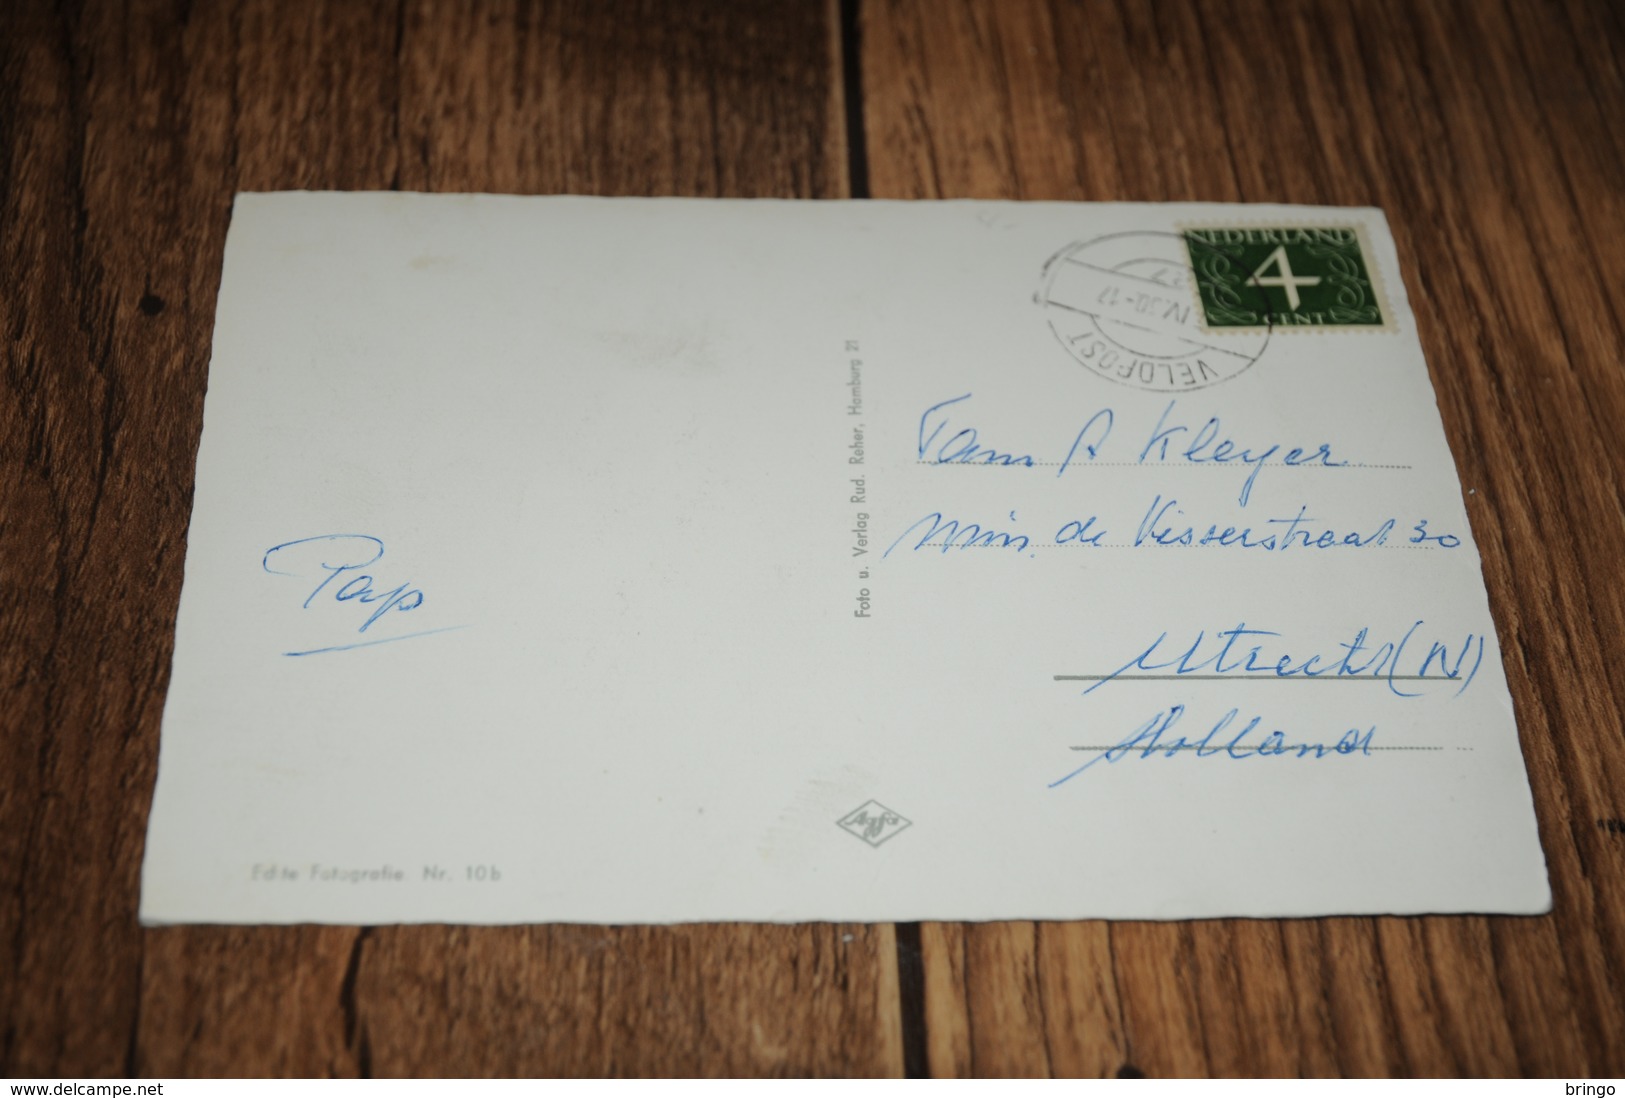 NEDERLAND
4
CENT
VELDPOST
IV.30.-17
Fam A Kleyer
Min. de Visserstraat 30
Utrecht (N)
Holland
Pap
Foto u. Verlag Rud. Reher, Hamburg 21
Agfa
Edite Fotografie Nr. 10b
www.delcampe.net
bringo